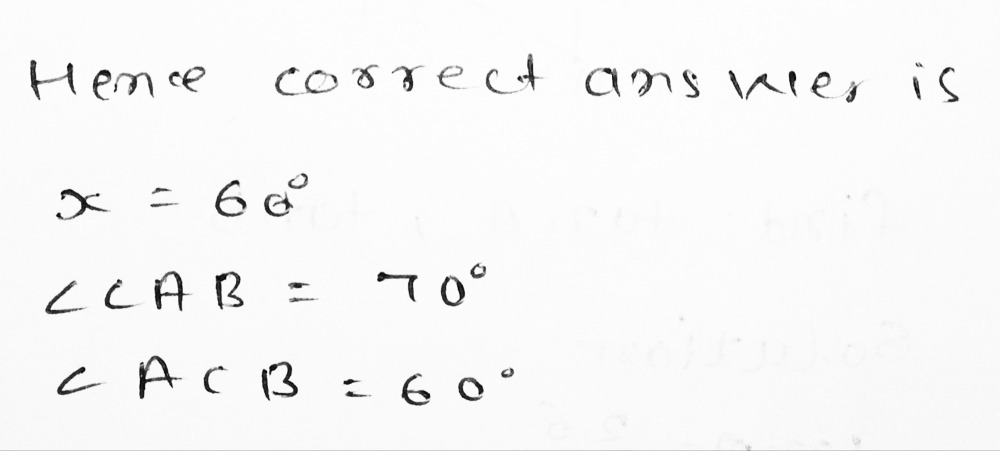 Hence correct answer is
x = 60°
∠CAB = 70°
∠ACB = 60°